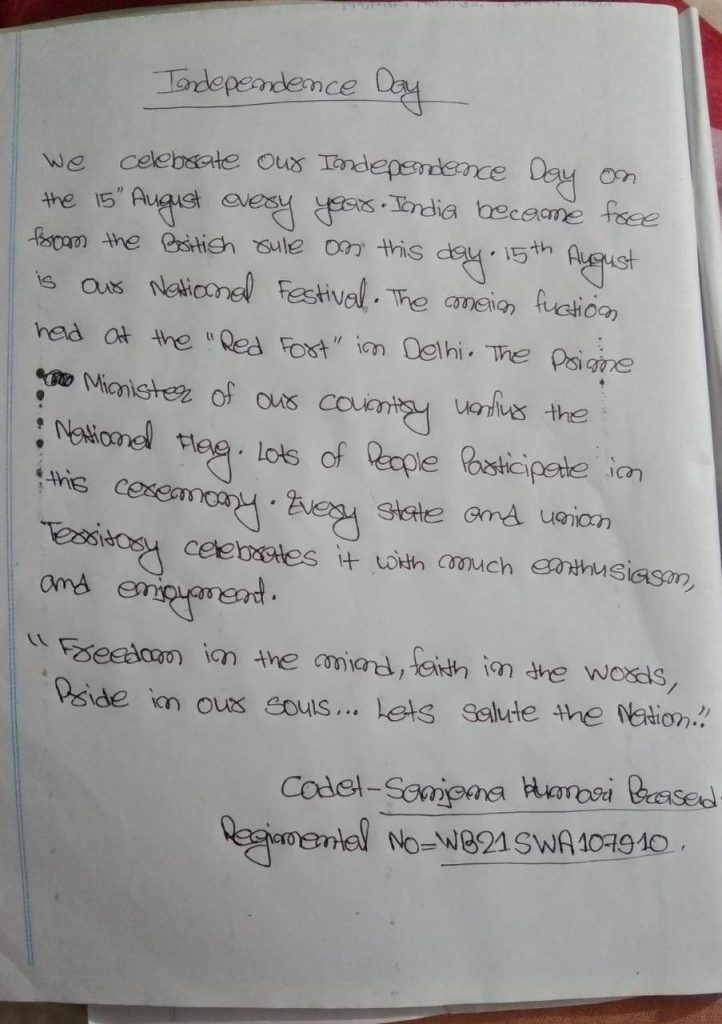 Independence Day
We celebrate our Independence Day on
the 15" August every year. India became free
from the British rule on this day. 15th August
is our National Festival. The main fuction
held at the "Red Fort" in Delhi. The Prime
Minister of our country unflur the
National Flag. Lots of People Participate in
this ceremony. Every state and union
Territory celebrates it with much enthusiasm,
and enjoyment.
"Freedom in the mind, faith in the words,
Pride in our souls... Lets salute the Nation."
Cadet-Sanjana Kumari Prasad.
Regimental No=WB21SWA107910.